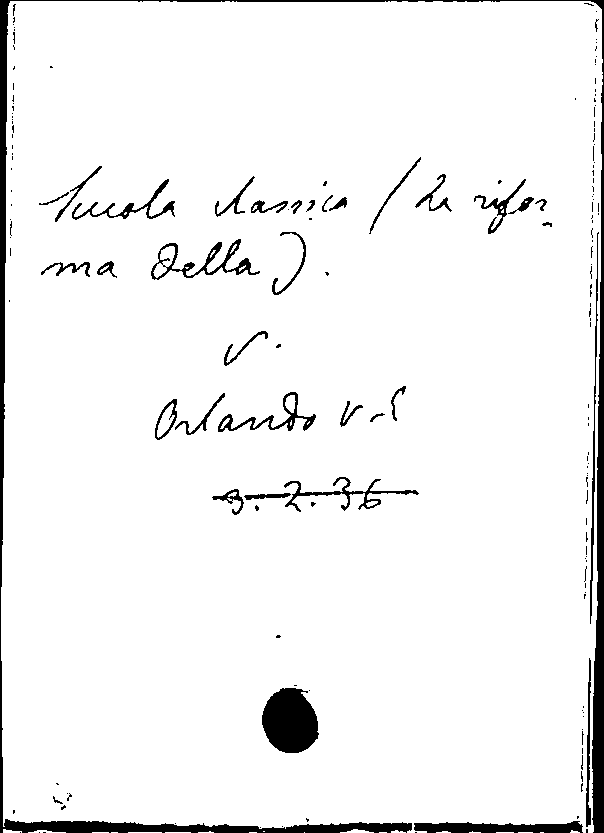 Scuola classica (La rifor-
ma della).
V.
Orlando V. E
3. 2. 36